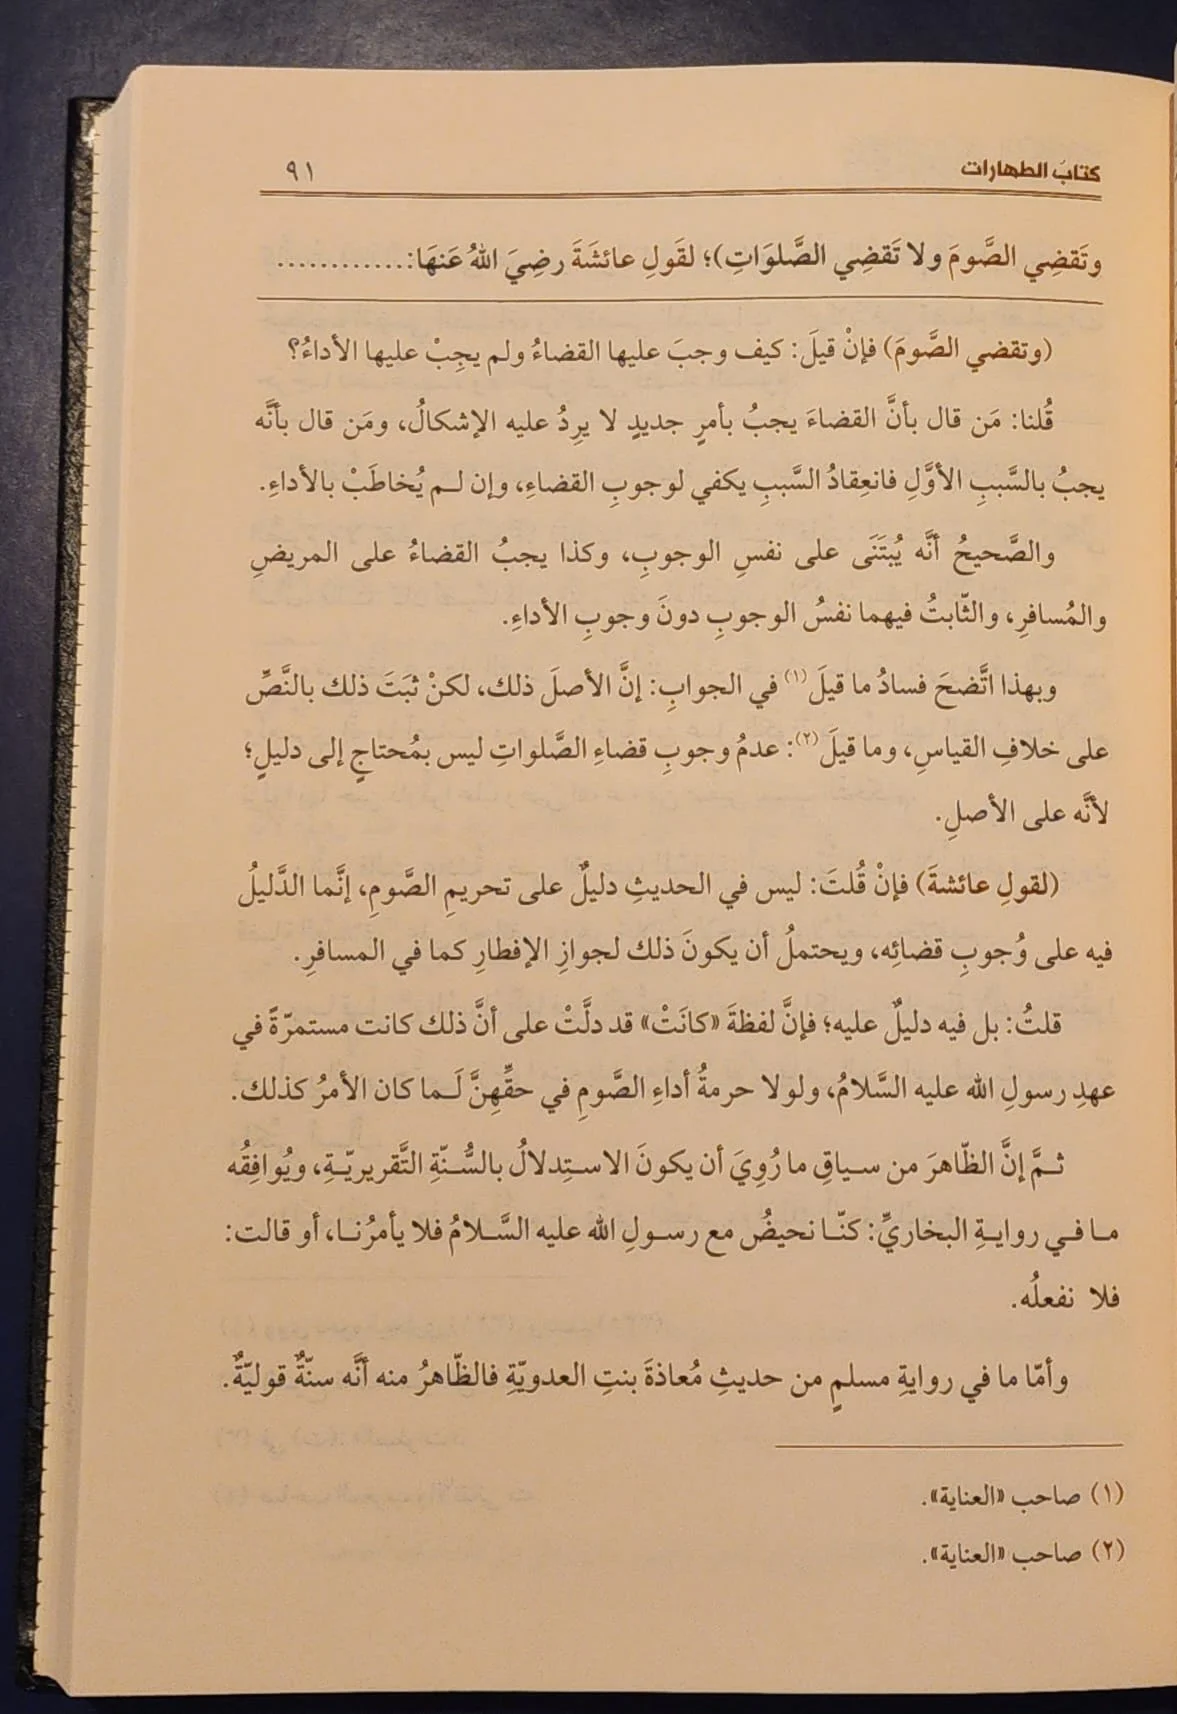 كتاب الطهارات ٩١
وتَقضِي الصَّومَ ولا تَقضِي الصَّلوَاتِ)؛ لقَولِ عائشَةَ رضِيَ اللهُ عَنهَا:.............
(وتقضي الصَّومَ) فإنْ قيلَ: كيف وجبَ عليها القضاءُ ولم يجِبْ عليها الأداءُ؟
قُلنا: مَن قال بأنَّ القضاءَ يجبُ بأمرٍ جديدٍ لا يرِدُ عليه الإشكالُ، ومَن قال بأنَّه
يجبُ بالسَّببِ الأوَّلِ فانعِقادُ السَّببِ يكفي لوجوبِ القضاءِ، وإن لم يُخاطَبْ بالأداءِ.
والصَّحيحُ أنَّه يُبتَنَى على نفسِ الوجوبِ، وكذا يجبُ القضاءُ على المريضِ
والمُسافرِ، والثّابتُ فيهما نفسُ الوجوبِ دونَ وجوبِ الأداءِ.
وبهذا اتَّضحَ فسادُ ما قيلَ(١) في الجوابِ: إنَّ الأصلَ ذلك، لكنْ ثبَتَ ذلك بالنَّصِّ
على خلافِ القياسِ، وما قيلَ(٢): عدمُ وجوبِ قضاءِ الصَّلواتِ ليس بمُحتاجٍ إلى دليلٍ؛
لأنَّه على الأصلِ.
(لقولِ عائشةَ) فإنْ قُلتَ: ليس في الحديثِ دليلٌ على تحريمِ الصَّومِ، إنَّما الدَّليلُ
فيه على وُجوبِ قضائِه، ويحتملُ أن يكونَ ذلك لجوازِ الإفطارِ كما في المسافرِ.
قلتُ: بل فيه دليلٌ عليه؛ فإنَّ لفظةَ «كانَتْ» قد دلَّتْ على أنَّ ذلك كانت مستمرّةً في
عهدِ رسولِ الله عليه السَّلامُ، ولولا حرمةُ أداءِ الصَّومِ في حقِّهِنَّ لَما كان الأمرُ كذلك.
ثمَّ إنَّ الظّاهرَ من سياقِ ما رُوِيَ أن يكونَ الاستِدلالُ بالسُّنّةِ التَّقريريّةِ، ويُوافِقُه
ما في روايةِ البخاريِّ: كنّا نحيضُ مع رسولِ الله عليه السَّلامُ فلا يأمرُنا، أو قالت:
فلا نفعلُه.
وأمّا ما في روايةِ مسلمٍ من حديثِ مُعاذةَ بنتِ العدويّةِ فالظّاهرُ منه أنَّه سنّةٌ قوليّةٌ.
(١) صاحب «العناية».
(٢) صاحب «العناية».